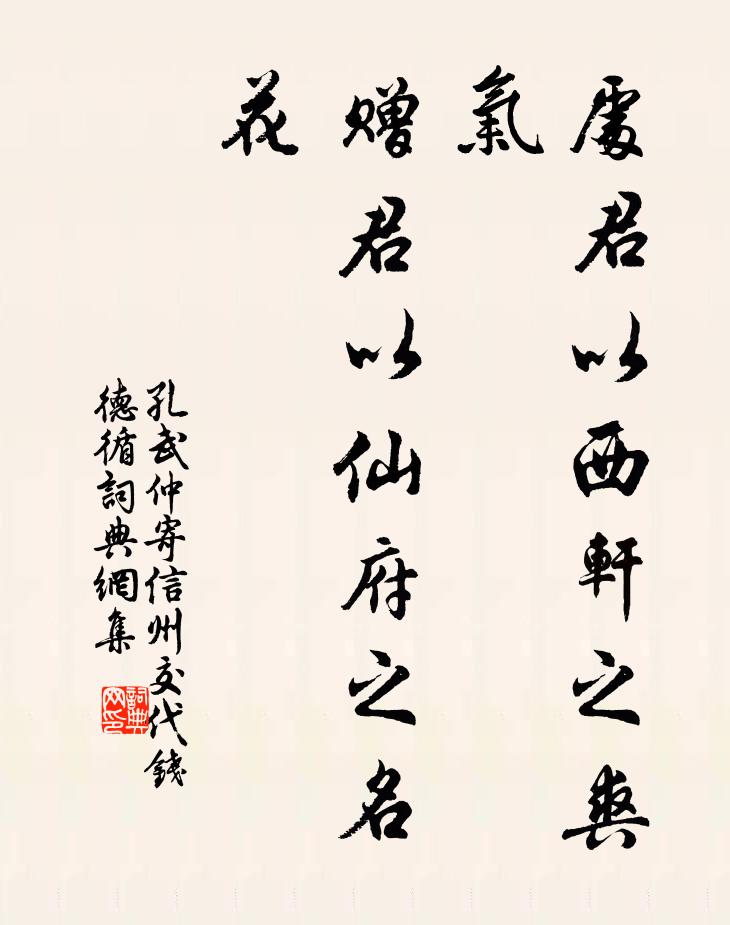 處君以西軒之爽
氣
贈君以仙府之名
花
孔武仲寄信州交代錢
德循詞典網集
詞典
网印